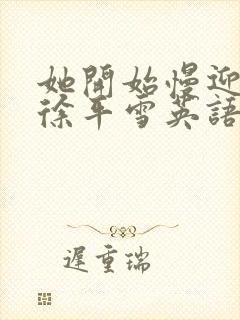 她開始慢迎
徐平雪英語
遲重瑞